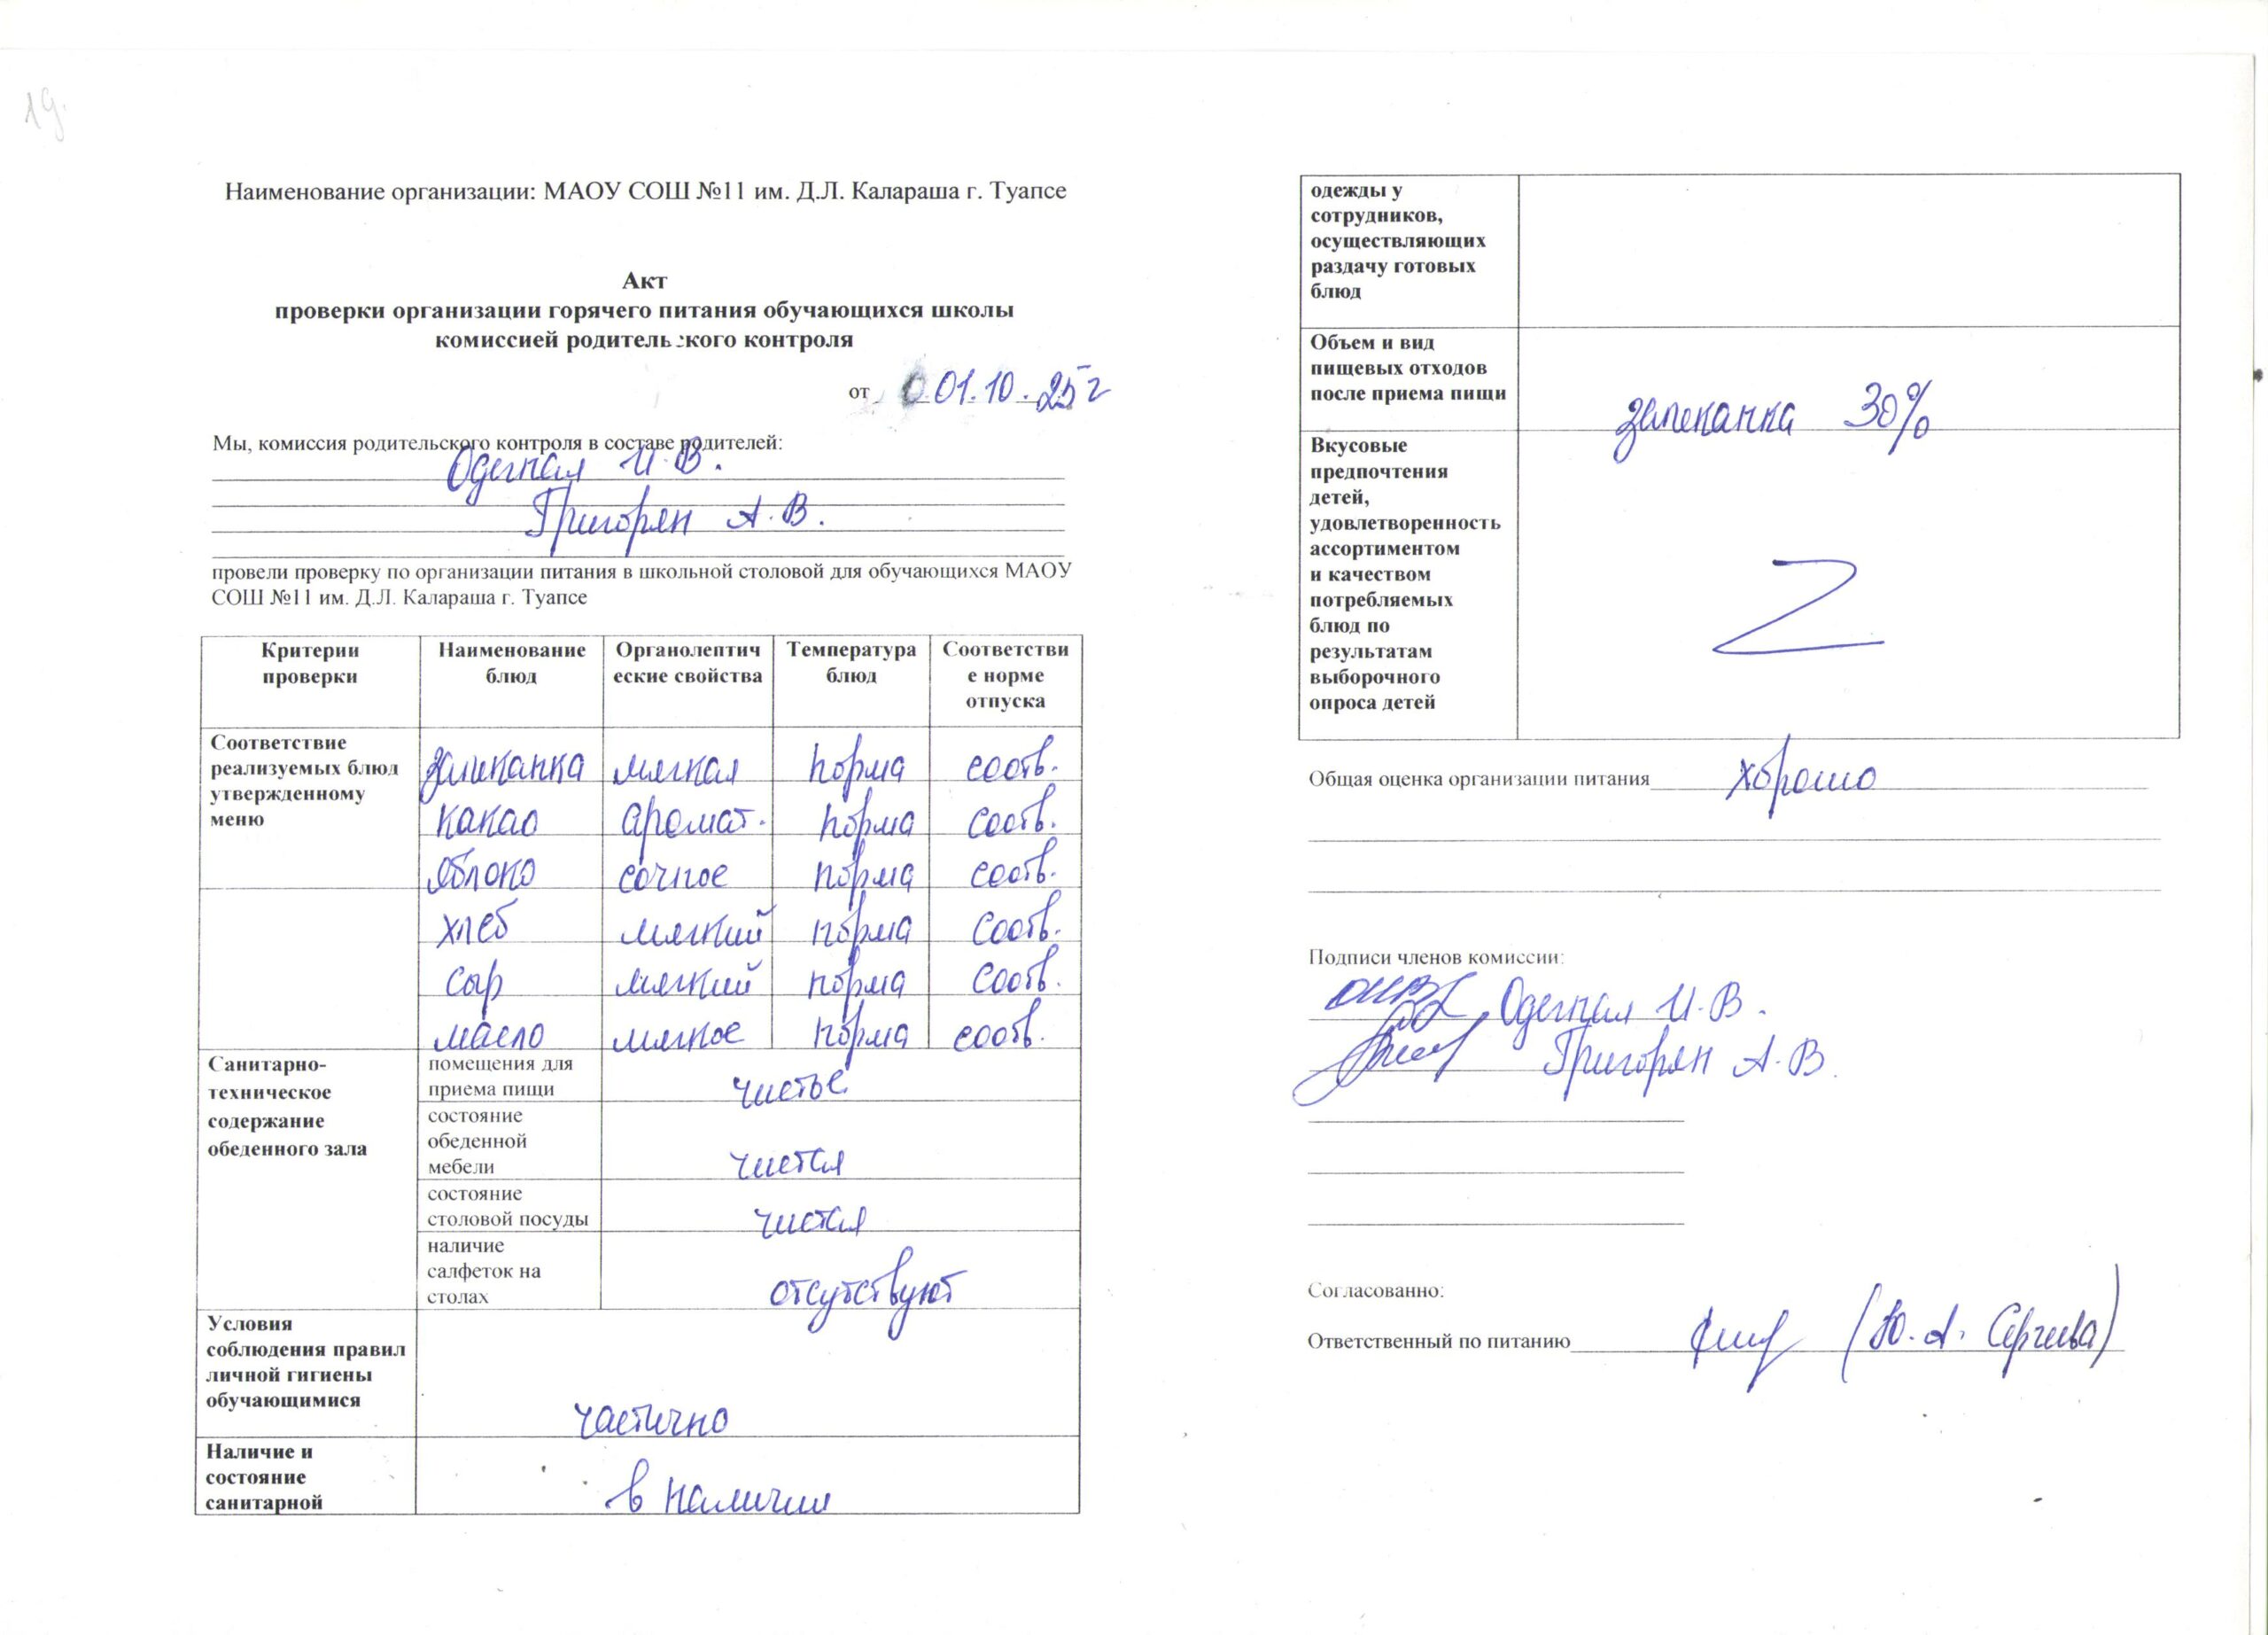 19.
Наименование организации: МАОУ СОШ №11 им. Д.Л. Калараша г. Туапсе
Акт
проверки организации горячего питания обучающихся школы
комиссией родительского контроля
от 01.10.25г
Мы, комиссия родительского контроля в составе родителей:
И.В.
Григорян А.В.
провели проверку по организации питания в школьной столовой для обучающихся МАОУ
СОШ №11 им. Д.Л. Калараша г. Туапсе
Критерии проверки | Наименование блюд | Органолептические свойства | Температура блюд | Соответствие норме отпуска
Соответствие
реализуемых блюд
утвержденному
меню
запеканка мягкая норма соотв.
какао аромат. норма соотв.
яблоко сочное норма соотв.
хлеб мягкий норма соотв.
сыр мягкий норма соотв.
масло мягкое норма соотв.
Санитарно-
техническое
содержание
обеденного зала
помещения для
приема пищи чистое
состояние
обеденной
мебели чистая
состояние
столовой посуды чистая
наличие
салфеток на
столах отсутствуют
Условия
соблюдения правил
личной гигиены
обучающимися
частично
Наличие и
состояние
санитарной
в наличии
одежды у
сотрудников,
осуществляющих
раздачу готовых
блюд
Объем и вид
пищевых отходов
после приема пищи
запеканка 30%
Вкусовые
предпочтения
детей,
удовлетворенность
ассортиментом
и качеством
потребляемых
блюд по
результатам
выборочного
опроса детей
Общая оценка организации питания хорошо
Подписи членов комиссии:
И.В.
Григорян А.В.
Согласованно:
Ответственный по питанию (Ю.А. Сергеева)